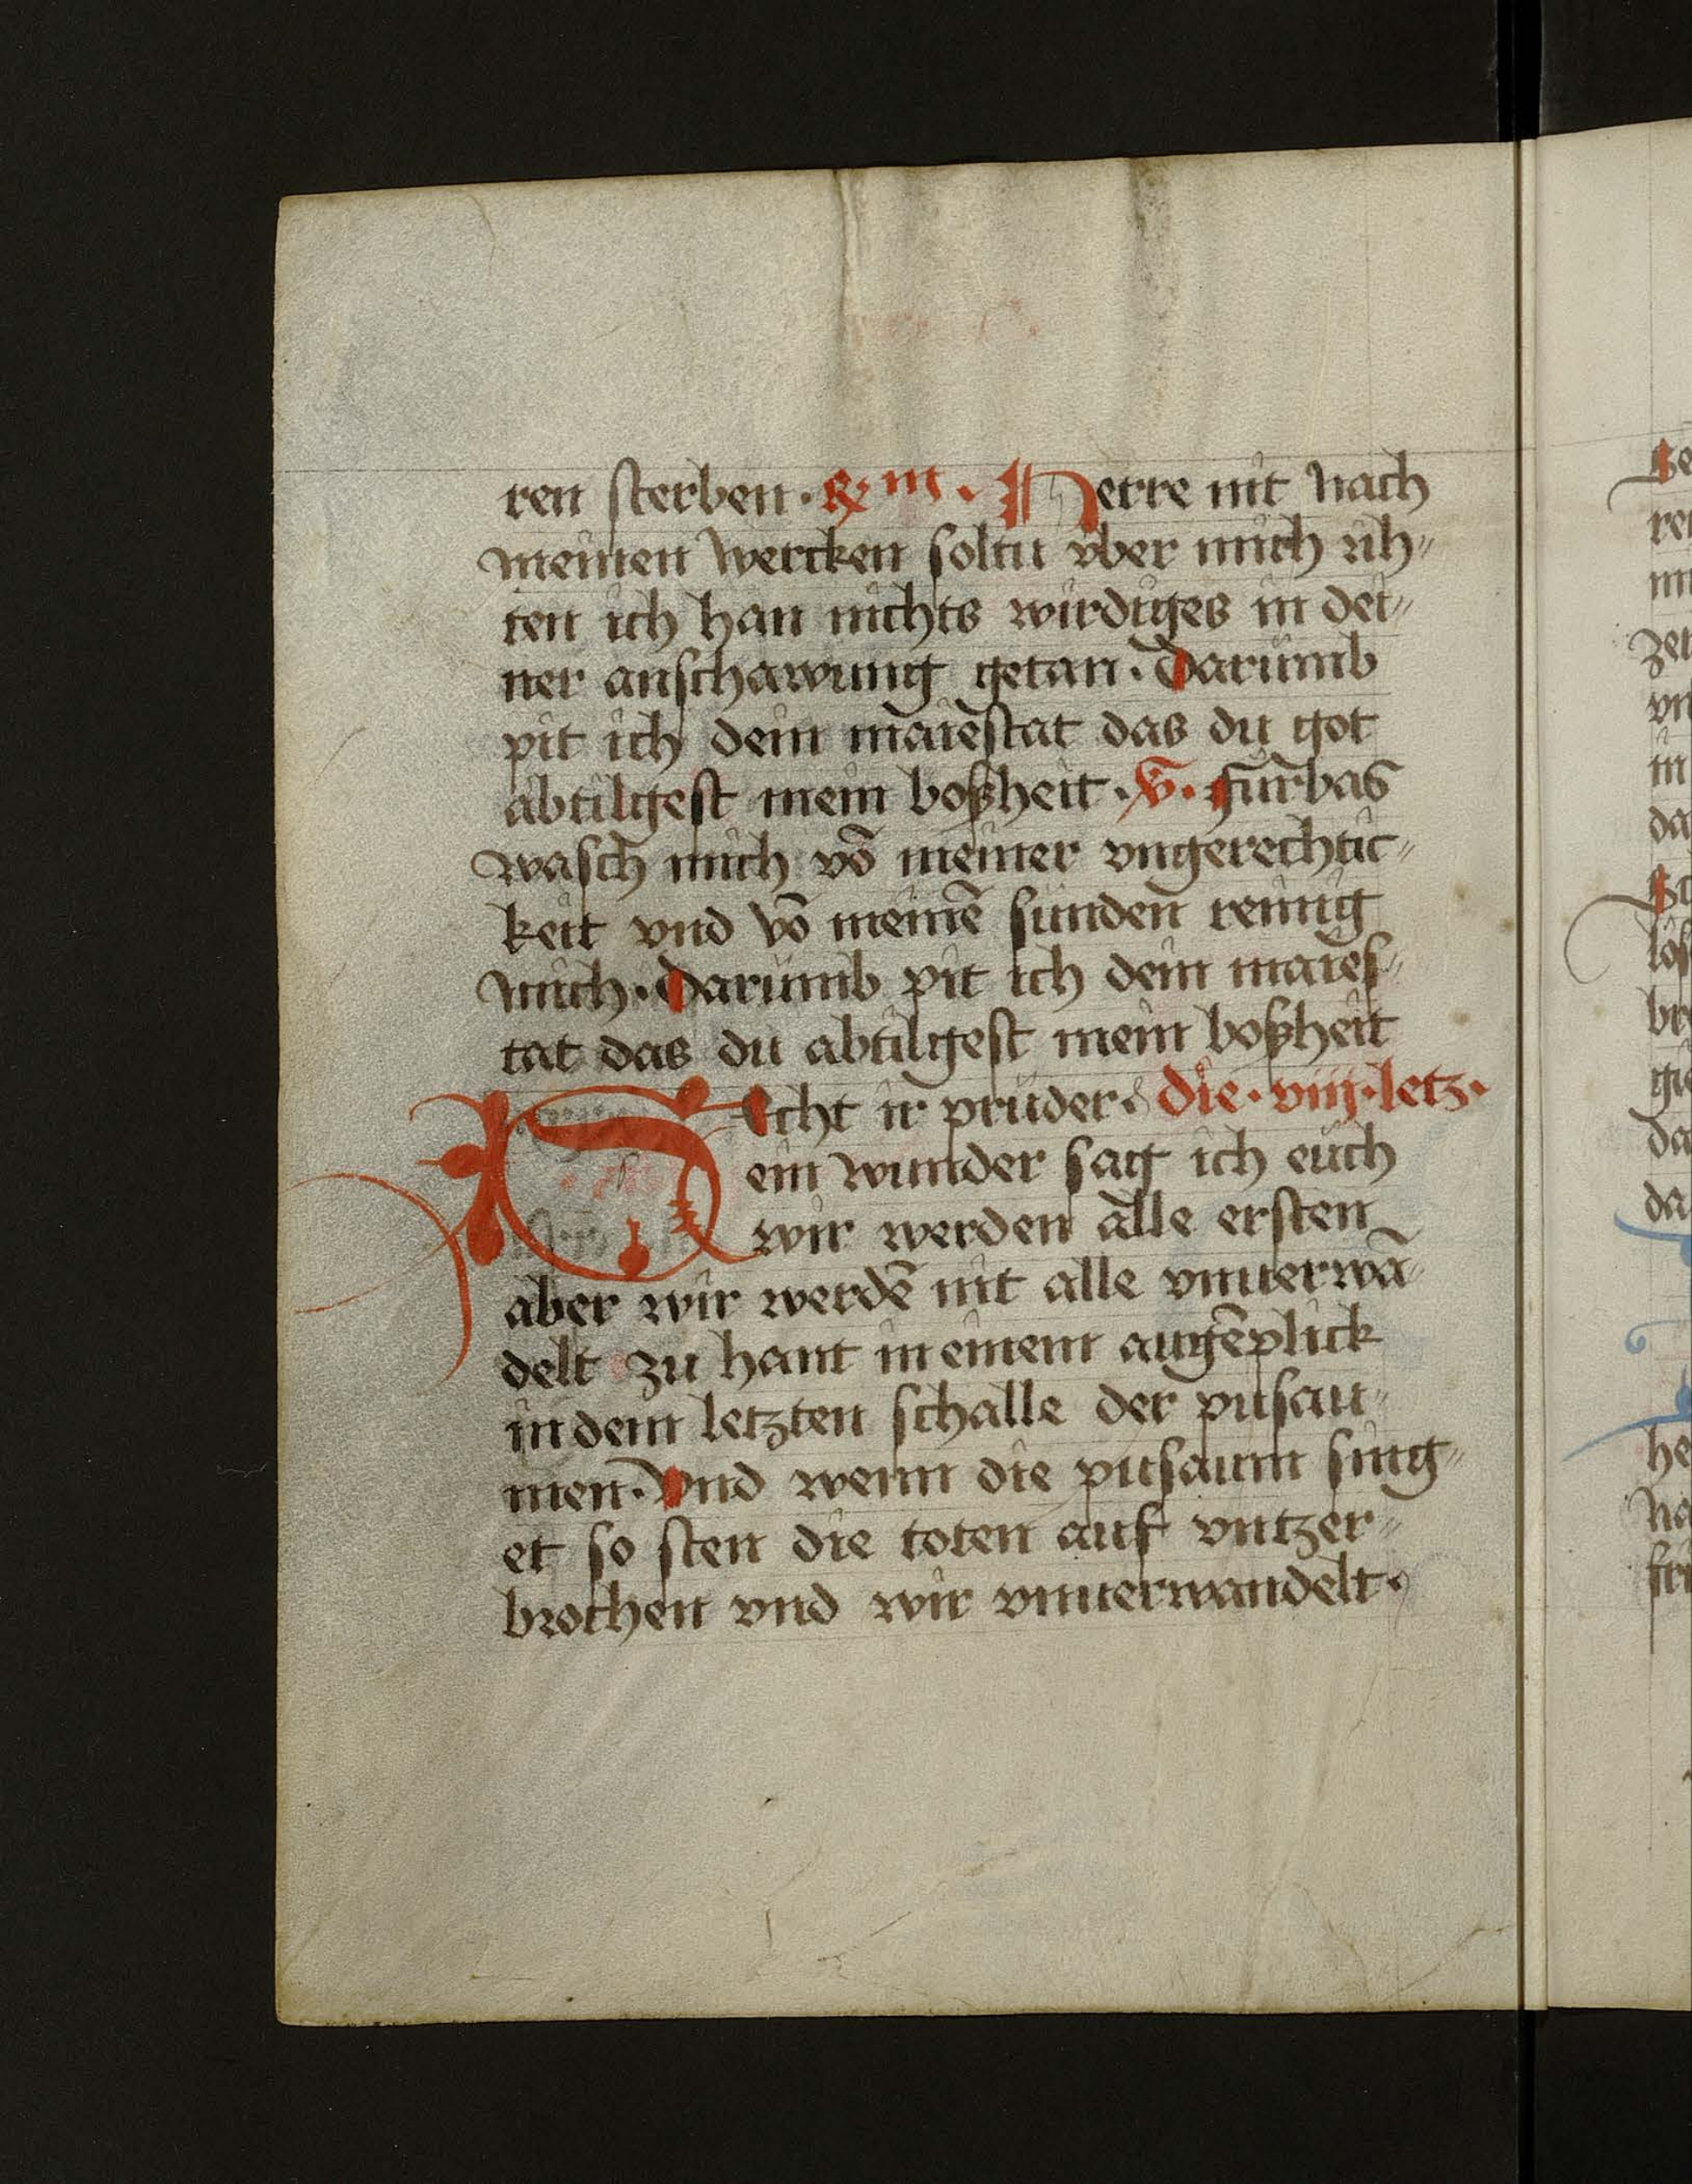 ren sterben · ℟ m · Herre nit nach
meinen wercken soltu vber mich rih„
ten ich han nichts wirdiges in dei„
ner anschawung getan · Darumb
pit ich dein maiestat das du got
abtilgest mein boßheit · V · furbas
wasch mich vō meiner vngerechtic„
keit vnd vō meinē sunden reinig
mich · Darumb pit ich dein maies„
tat das du abtilgest mein boßheit
Secht ir pruder · die · viij · letz ·
ein wunder sag ich euch
wir werden alle ersten
aber wir werdē nit alle vmuerwā
delt zu hant in einem augēplick
in dem letzten schalle der pusau„
men · Vnd wenn die pusaum sing„
et so sten die toten auf vntzer„
brochen vnd wir vmuerwandelt ·